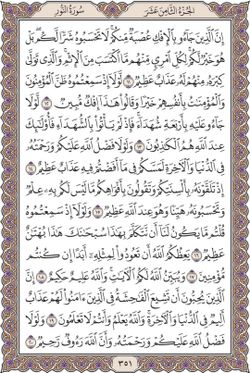 سُورَةُ النُّورِ الجُزْءُ الثَّامِنَ عَشَرَ
إِنَّ الَّذِينَ جَاءُو بِالْإِفْكِ عُصْبَةٌ مِنْكُمْ لَا تَحْسَبُوهُ شَرًّا لَكُمْ بَلْ
هُوَ خَيْرٌ لَكُمْ لِكُلِّ امْرِئٍ مِنْهُمْ مَا اكْتَسَبَ مِنَ الْإِثْمِ وَالَّذِي تَوَلَّى
كِبْرَهُ مِنْهُمْ لَهُ عَذَابٌ عَظِيمٌ ١١ لَوْلَا إِذْ سَمِعْتُمُوهُ ظَنَّ الْمُؤْمِنُونَ
وَالْمُؤْمِنَاتُ بِأَنْفُسِهِمْ خَيْرًا وَقَالُوا هَذَا إِفْكٌ مُبِينٌ ١٢ لَوْلَا
جَاءُو عَلَيْهِ بِأَرْبَعَةِ شُهَدَاءَ فَإِذْ لَمْ يَأْتُوا بِالشُّهَدَاءِ فَأُولَئِكَ
عِنْدَ اللَّهِ هُمُ الْكَاذِبُونَ ١٣ وَلَوْلَا فَضْلُ اللَّهِ عَلَيْكُمْ وَرَحْمَتُهُ
فِي الدُّنْيَا وَالْآخِرَةِ لَمَسَّكُمْ فِي مَا أَفَضْتُمْ فِيهِ عَذَابٌ عَظِيمٌ ١٤
إِذْ تَلَقَّوْنَهُ بِأَلْسِنَتِكُمْ وَتَقُولُونَ بِأَفْوَاهِكُمْ مَا لَيْسَ لَكُمْ بِهِ عِلْمٌ
وَتَحْسَبُونَهُ هَيِّنًا وَهُوَ عِنْدَ اللَّهِ عَظِيمٌ ١٥ وَلَوْلَا إِذْ سَمِعْتُمُوهُ
قُلْتُمْ مَا يَكُونُ لَنَا أَنْ نَتَكَلَّمَ بِهَذَا سُبْحَانَكَ هَذَا بُهْتَانٌ
عَظِيمٌ ١٦ يَعِظُكُمُ اللَّهُ أَنْ تَعُودُوا لِمِثْلِهِ أَبَدًا إِنْ كُنْتُمْ
مُؤْمِنِينَ ١٧ وَيُبَيِّنُ اللَّهُ لَكُمُ الْآيَاتِ وَاللَّهُ عَلِيمٌ حَكِيمٌ ١٨ إِنَّ
الَّذِينَ يُحِبُّونَ أَنْ تَشِيعَ الْفَاحِشَةُ فِي الَّذِينَ آمَنُوا لَهُمْ عَذَابٌ
أَلِيمٌ فِي الدُّنْيَا وَالْآخِرَةِ وَاللَّهُ يَعْلَمُ وَأَنْتُمْ لَا تَعْلَمُونَ ١٩ وَلَوْلَا
فَضْلُ اللَّهِ عَلَيْكُمْ وَرَحْمَتُهُ وَأَنَّ اللَّهَ رَءُوفٌ رَحِيمٌ ٢٠
٣٥١